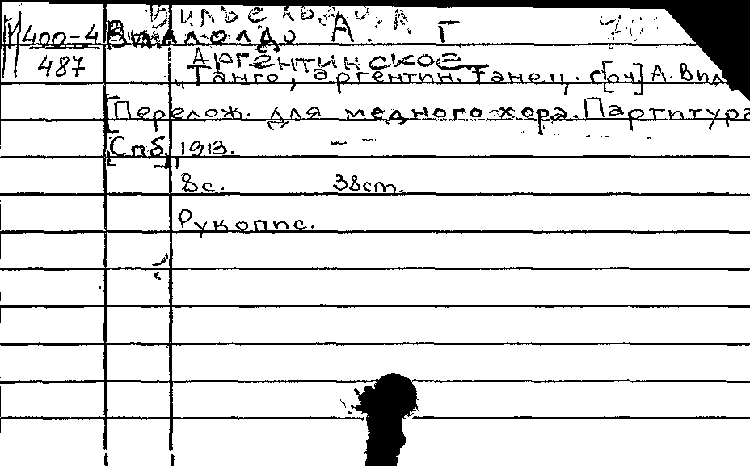 Вильельдо, А
М 400-4 Виллолдо А. Г
487 Аргентинское
"Танго", аргентин. танец. с[оч] А. Вил
[Перелож. для медного хора. Партитура
[Спб], 1913.
8с. 38ст.
Рукопис.